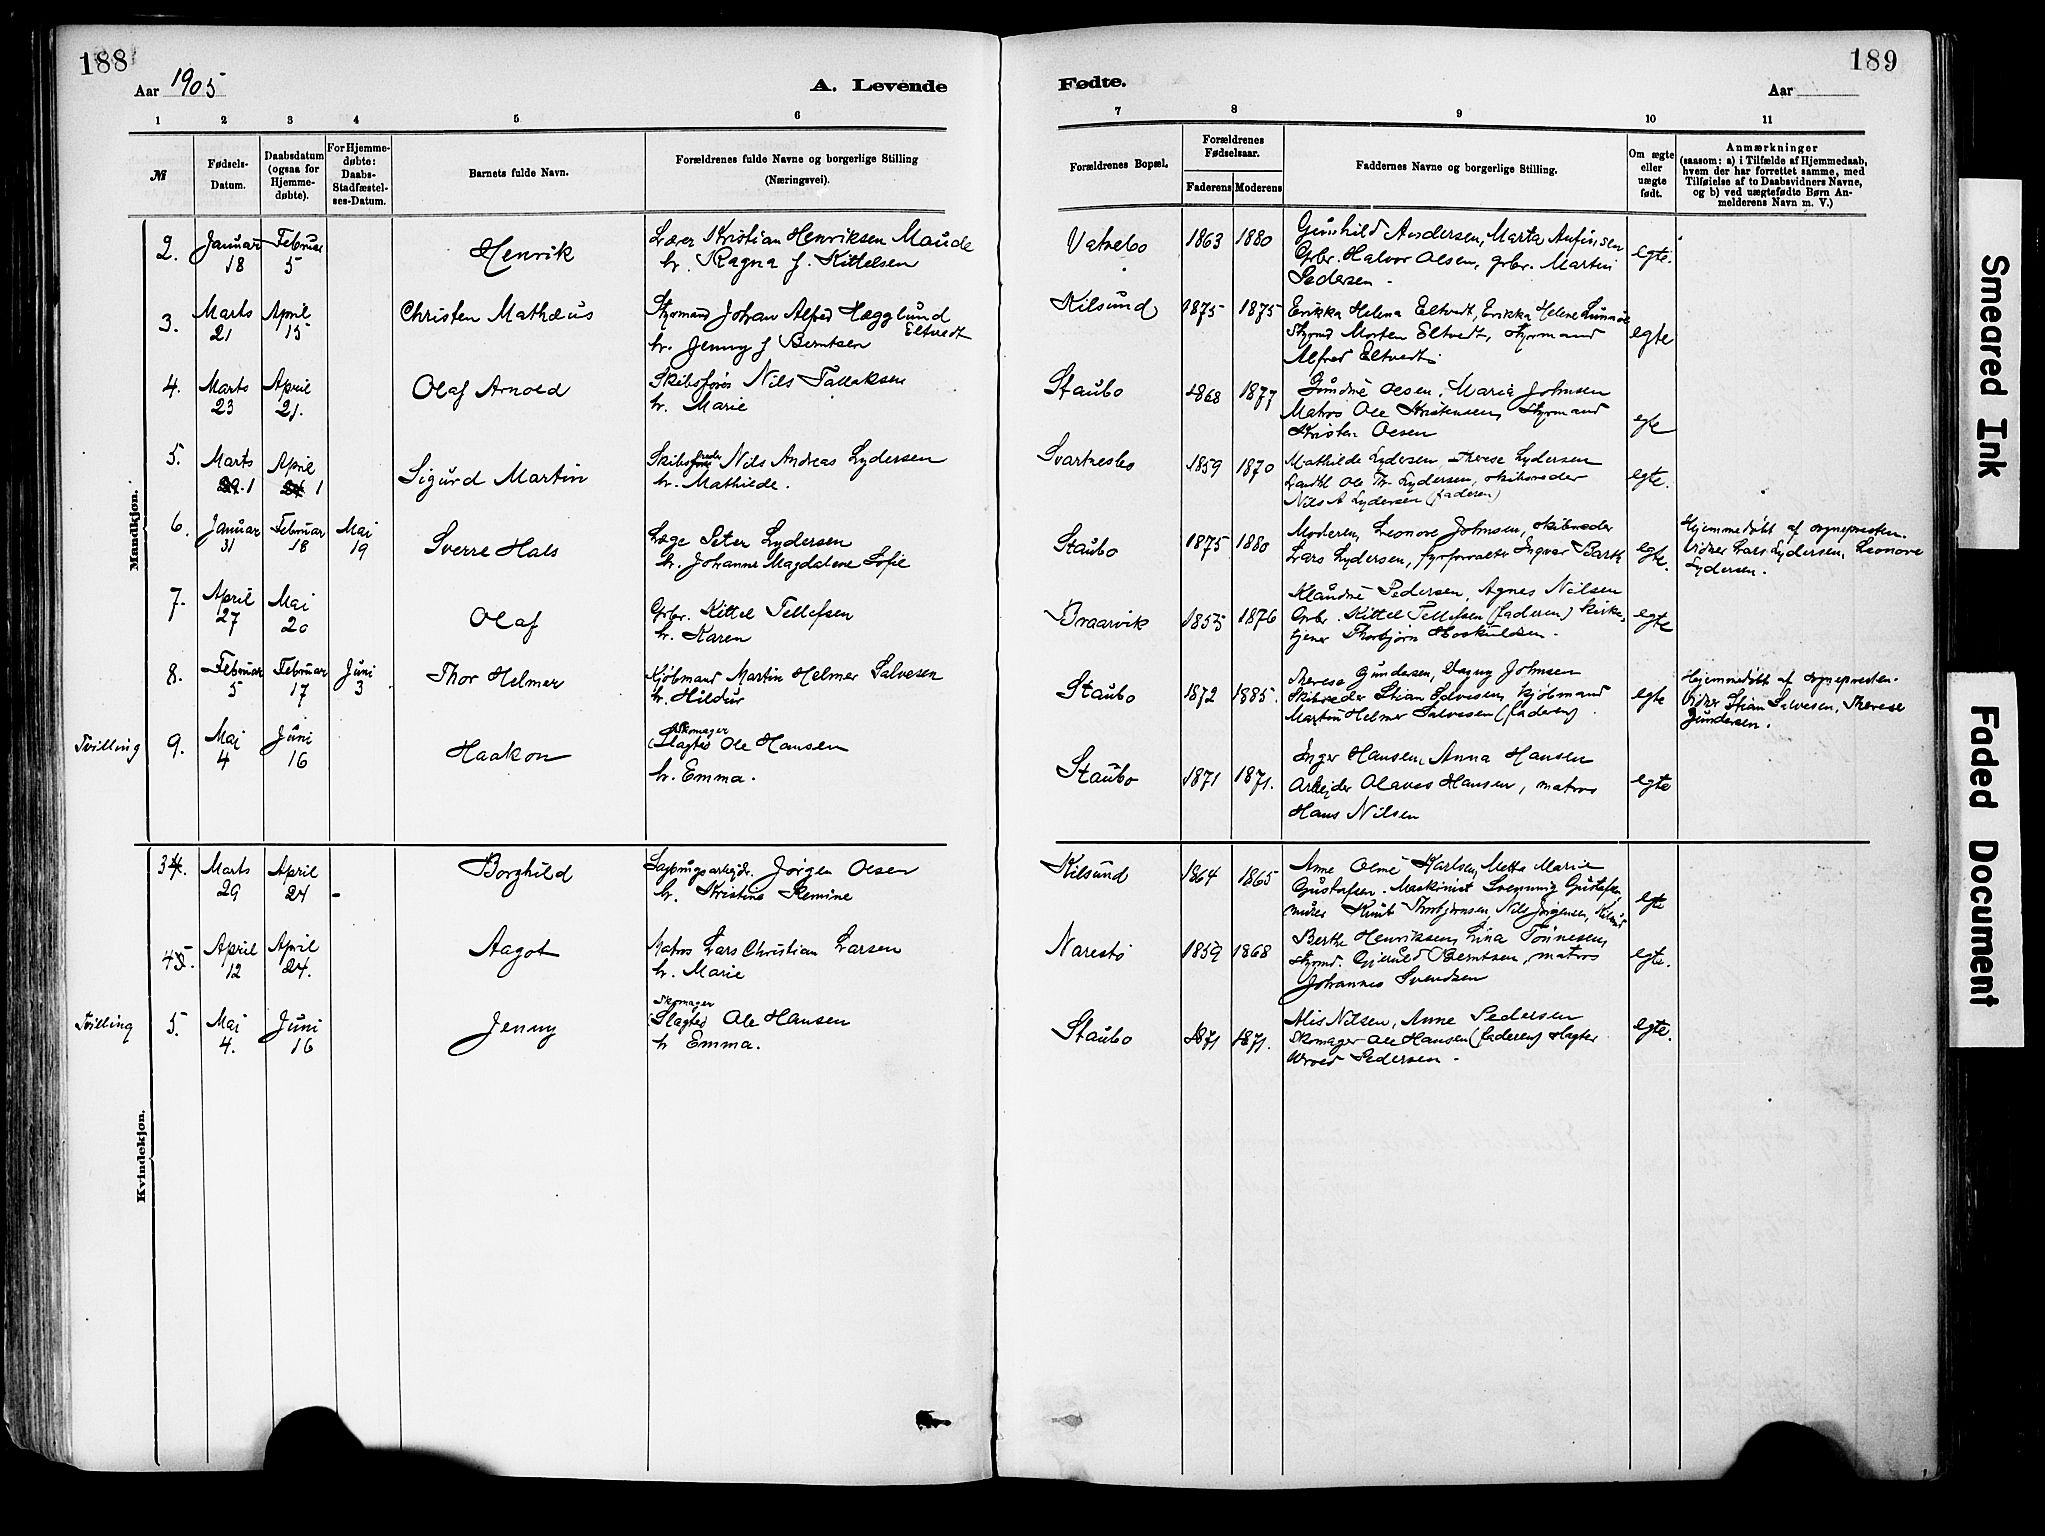 188
Aar 1905
A. Levende
1 2 3 4 5 6
№
Fødsels-
Datum.
Daabsdatum
(ogsaa for
Hjemme-
døbte).
For Hjemme-
døbte:
Daabs-
Stadfæstel-
ses-Datum.
Barnets fulde Navn.
Forældrenes fulde Navne og borgerlige Stilling
(Næringsvei).
Mandkjøn.
2. Januar 18 Februar 5 Henrik
Kristian Henriksen Maude
h. Ragna f. Kittelsen
3. Marts 21 April 15 Christen Mathæus
Styrmand Johan Alfred Hægglund
Eltvedt
h. Jenny f Berntsen
4. Marts 23 April 21. Olaf Arnold
Skibsfører Nils Tallaksen
h. Marie
5. Marts 1 April 1 Sigurd Martin
reder
Skibs Nils Andreas Lydersen
h. Mathilde.
6. Januar 31 Februar 18 Mai 19 Sverre Hals
Læge Peter Lydersen
h. Johanne Magdalene Sofie
7. April 27 Mai 20 Olaf
Grbr. Kittel Tellefsen
h. Karen
8. Februar 5 Februar 17 Juni 3 Thor Helmer
Kjøbmand Martin Helmer Salvesen
h. Hildur
Tvilling 9. Mai 4 Juni 16 Haakon
Skomager
Slagter Ole Hansen
h. Emma.
Kvindekjøn.
3. Marts 29 April 24 - Borghild
Jørgen Olsen
h. Kristine
4. April 12 April 24. Aagot
Matros Lars Christian Larsen
h. Marie
Tvilling 5. Mai 4. Juni 16 Jenny
Skomager
Slagter Ole Hansen
h Emma.
189
Fødte.
Aar
7 8 9 10 11
Forældrenes Bopæl.
Forældrenes
Fødselsaar.
Faderens Moderens
Faddernes Navne og borgerlige Stilling.
Om ægte
eller
uægte
født.
Anmærkninger
(saasom: a) i Tilfælde af Hjemmedaab,
hvem der har forrettet samme, med
Tilføielse af to Daabsvidners Navne,
og b) ved uægtefødte Børn An-
melderens Navn m. V.)
Vatnebo 1863 1880 Gunhild Andersen, Marta Anfinsen
Grbr. Halvor Olsen, grbr. Martin egte.
Pedersen -
Kilsund 1875 1875 Erikka Helena Eltvedt, Erikka Helene
Styrmd Morten Eltvedt, Styrmand egte
Alfred Eltvedt.
Staubo 1868 1877 Gundine Olsen, Marie Johnsen
Matros Ole Kristensen, Styrmand
Kristen Olsen egte
1859 1870 Mathilde Lydersen, Therese Lydersen
Ole Th. Lydersen, skibsreder egte.
Nils A Lydersen (faderen)
Staubo 1875 1880 Moderen, Leonove Johnsen, skibsreder
Lars Lydersen, fyrforvalter Ingvar egte.
Hjemmedøbt af sognepresten.
Vidner Lars Lydersen, Leonove
Lydersen.
Braarvik 1855 1876 Klaudine Pedersen, Agnes Nilsen
Grbr. Kittel Tellefsen (faderen) kirke, egte
tjener Thorbjørn Hoskuldsen -
Staubo 1872 1885. Therese Gundersen, Dagny Johnsen
Skibsreder Stian Salvesen, kjøbmand egte
Martin Helmer Salvesen (faderen)
Hjemmedøbt af sognepresten.
Vidner Stian Salvesen, Therese
Gundersen.
Staubo 1871 1871. Inger Hansen, Anna Hansen
Arbejder Olaves Hansen, matros egte
Hans Nilsen
Kilsund 1864 1865 Anne Oline Karlsen, Metta Marie
Gustafsen. Maskinist Svenning Gustafsen,
murer Knut Thorbjørnsen, Nils Jørgensen, egte
Narestø 1859 1868 Berthe Henriksen, Lina Tønnesen,
styrmd. Berntsen, matros egte.
Johannes Svendsen
Staubo 1871 1871. Alis Nilsen, Anne Pedersen
Skomager Ole Hansen (faderen) slagter egte.
Pedersen -
Smeared Ink
Faded Document